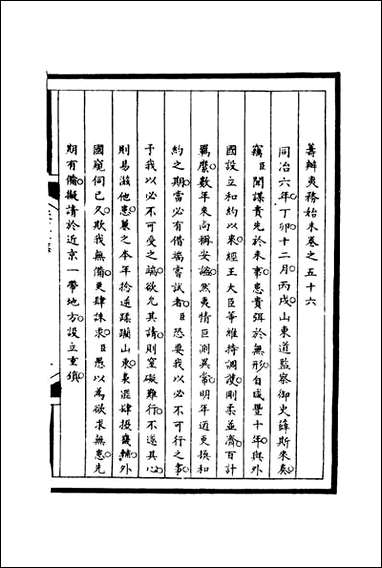 籌辦夷務始末卷之五十六
同治六年丁卯十二月丙戌山東道監察御史薛斯來奏
竊臣聞謀貴先於未事患貴弭於無形自咸豐十年與外
國設立和約以來經王大臣等維持調護剛柔並濟百計
羈縻數年來尚稱安謐然夷情叵測異常明年迺更換和
約之期當必有借端嘗試者臣恐要我以必不可行之事
予我以必不可受之端欲允其請則窒礙難行不遂其心
則易滋他患兼之本年捻逆蹂躪山東長混肆擾畿輔外
國窺伺已久欺我無備更肆誅求臣愚以為欲求無患先
期有備擬請於近京一帶地方設立重鎮